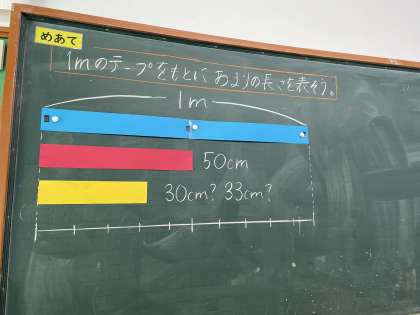 めあて
1mのテープをもとに あまりの長さを表そう。
1m
50cm
30cm? 33cm?